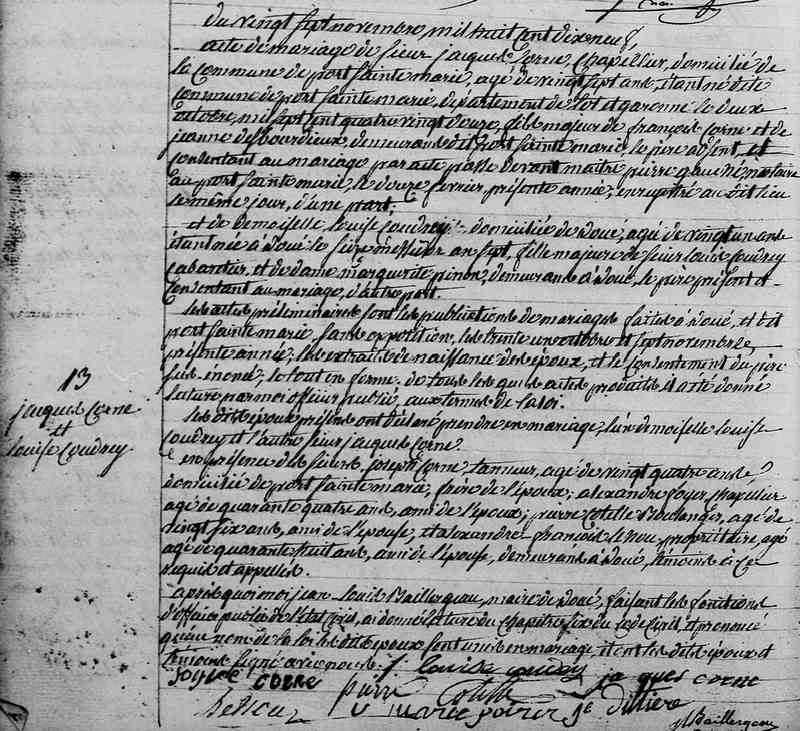 du vingt sept novembre mil huit cent dix neuf,
acte de mariage de sieur jacques Corne, Chapellier, domicilié de
la Commune de port sainte marie, agé de vingt sept ans, étant né dite
commune de port sainte marie, département de lot et garonne le deux
octobre mil sept cent quatre vingt douze, fils majeur de françois Corne et de
jeanne desbourdieux, demeurans dit port sainte marie le père absent, et
Consentant au mariage par acte passé devant maitre pierre notaire
au port sainte marie le douze fevrier, présente année, enregistré au dit lieu
le même jour, d'une part.
et de demoiselle louise Coudrey, domiciliée de doué, agé de vingt un ans
étant née à doué le seize messidor an sept, fille majeure de sieur louis Coudrey
cabaretier, et de dame marguerite pinon, demeurans à doué, le père présent et
Consentant au mariage, d'autre part.
les actes préliminaires sont les publications de mariages faites à doué, et dit
port sainte marie, sans opposition, les trente un octobre et sept novembre,
présente année, les extraits de naissance des époux, et le consentement du père
sus-énoncé, le tout en forme. de tous lesquels actes produits il a été donné
lecture par moi officier public, aux termes de la loi.
les dits époux présens ont déclaré prendre en mariage, l'un demoiselle louise
Coudrey et l'autre sieur jacques Corne.
en présence des sieurs joseph Corne tanneur, agé de vingt quatre ans,
domicilié de port sainte marie, frère de l'époux; alexandre foyer, chapelier
agé de quarante quatre ans, ami de l'époux; pierre Cotelle Boulanger, agé de
vingt six ans, ami de l'épouse, et alexandre françois propriétaire, agé
agé de quarante huit ans, ami de l'épouse, demeurans à doué, témoins à ce
requis et appellés.
après quoi moi jean louis Baillergeau, maire de doué, faisant les fonctions
d'officier public de l'état civil, ai donné lecture du chapitre six du code civil, et prononcé
qu'au nom de la loi les dits époux sont unis en mariage, et ont les dits époux et
témoins signé avec nous. louise coudrey jaques corne
joseph CORNE pierre Cotelle
marie poirier
Jl Baillergeau
13
jacques Corne
et
louise Coudrey